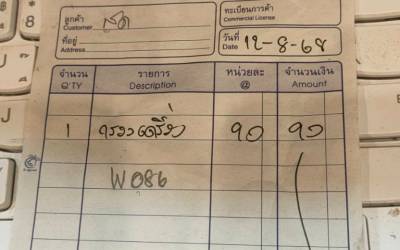 ลูกค้า
Customer สด
ทะเบียนการค้า
Commercial License
ที่อยู่
Address
วันที่ 12-8-68
Date
จำนวน รายการ หน่วยละ จำนวนเงิน
Q'TY Description @ Amount
1 กรองเครื่อง 90 90
W 086